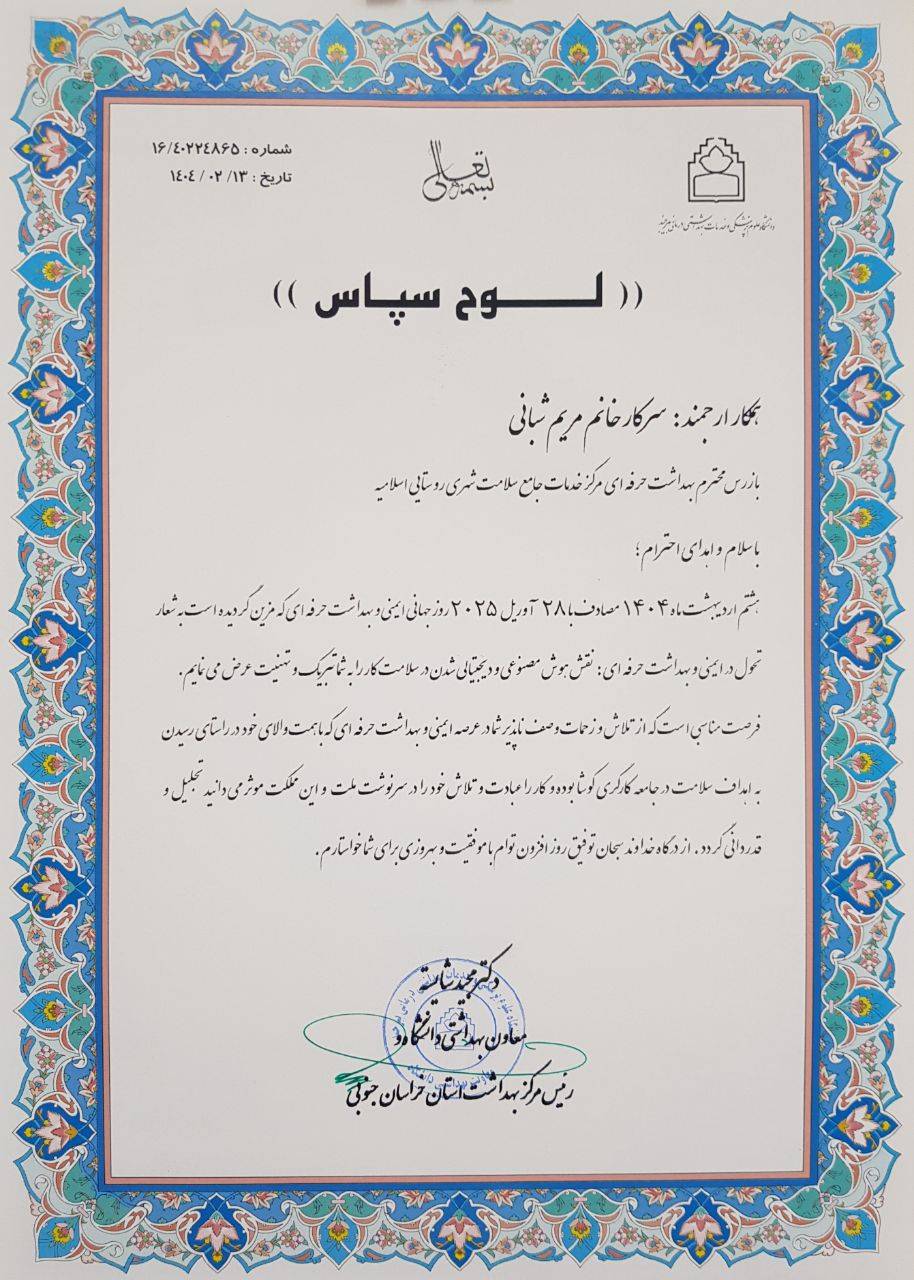 بسمه تعالی
دانشگاه علوم پزشکی و خدمات بهداشتی درمانی بیرجند
شماره : ۱۶/۴۰۲۲۴۸۶۵
تاریخ : ۱۴۰۴/۰۲/۱۳
(( لـــوح سپـاس ))
همکار ارجمند : سرکار خانم مریم شبانی
بازرس محترم بهداشت حرفه ای مرکز خدمات جامع سلامت شهری روستایی اسلامیه
با سلام و اهدای احترام ؛
هشتم اردیبهشت ماه ۱۴۰۴ مصادف با ۲۸ آوریل ۲۰۲۵ روز جهانی ایمنی و بهداشت حرفه ای که مزین گردیده است به شعار
تحول در ایمنی و بهداشت حرفه ای : نقش هوش مصنوعی و دیجیتالی شدن در سلامت کار را به شما تبریک و تهنیت عرض می نمایم .
فرصت مناسبی است که از تلاش و زحمات وصف ناپذیر شما در عرصه ایمنی و بهداشت حرفه ای که با همت والای خود در راستای رسیدن
به اهداف سلامت در جامعه کارگری کوشا بوده و کار را عبادت و تلاش خود را در سرنوشت ملت و این مملکت موثر می دانید تجلیل و
قدردانی گردد . از درگاه خداوند سبحان توفیق روز افزون توام با موفقیت و بهروزی برای شما خواستارم .
دکتر مجید شایسته
معاون بهداشتی دانشگاه و
رئیس مرکز بهداشت استان خراسان جنوبی